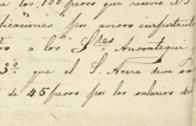 los 100 pesos que
licaciones por avisos important
a los S.les
3.º que el S. Acera deve
de 45 pesos por los salarios de